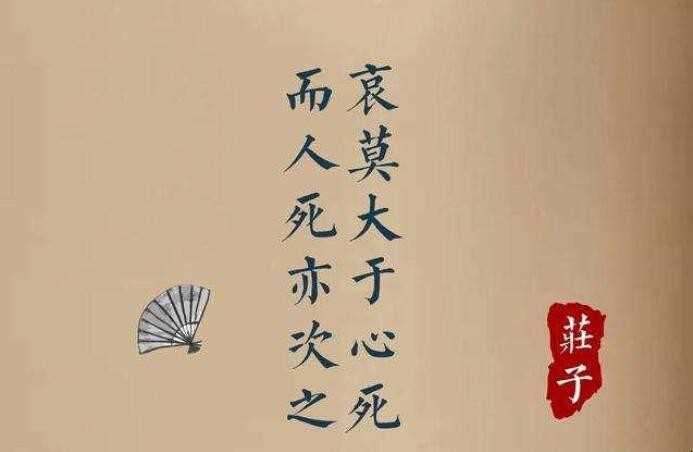 哀莫大于心死
而人死亦次之
莊子